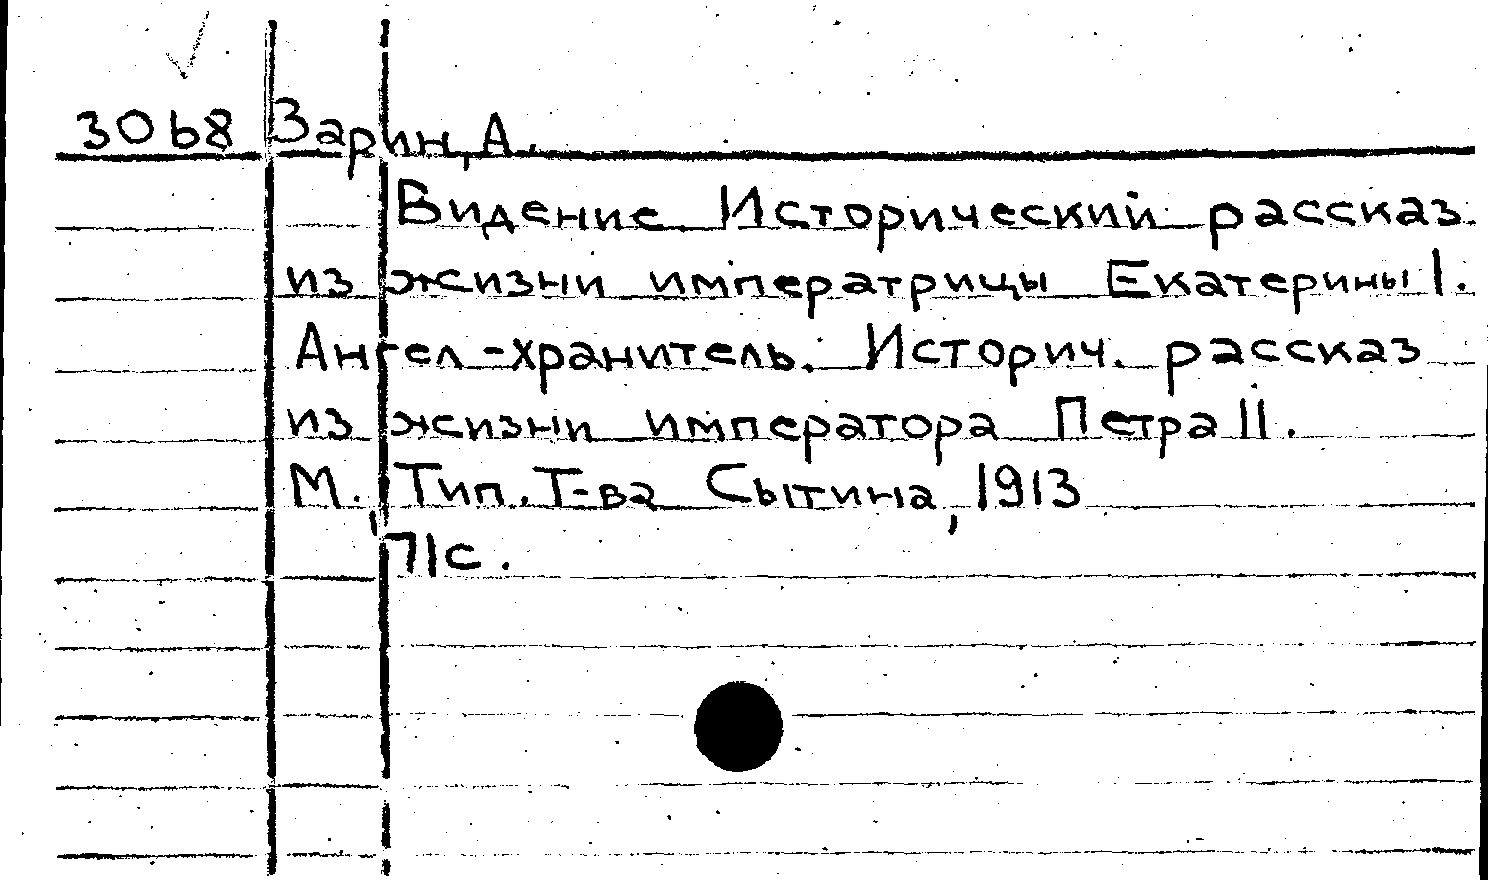 3068 Зарин, А.
Видение Исторический рассказ
из жизни императрицы Екатерины I.
Ангел-хранитель. Историч. рассказ
из жизни императора Петра II.
М., Тип. Т-ва Сытина, 1913
71с.